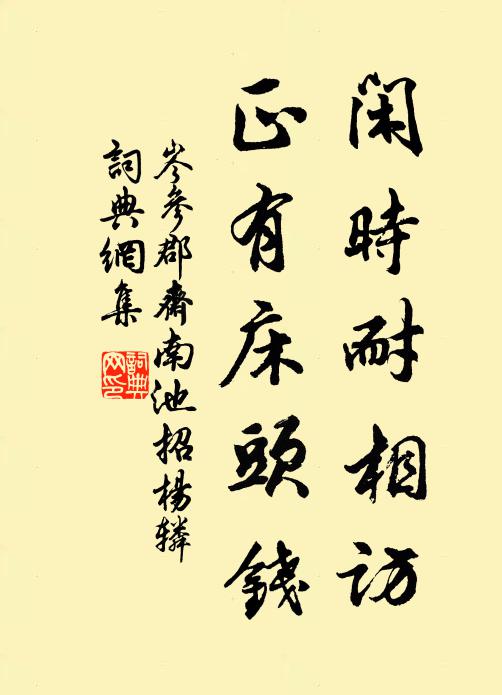 閑時耐相訪
正有床頭錢
岑參郡齋南池招楊轔
詞典網集
詞典
网印